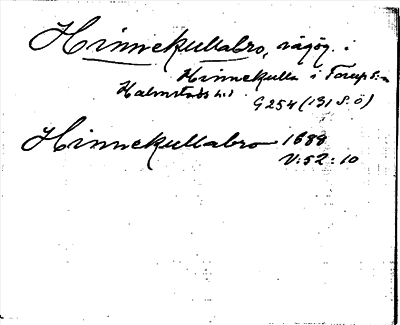 Hinnekullabro, vägög. i
Hinnekulla i Torup s:n
Halmstads h:d
G 254 (131 S.Ö)
Hinnekullabro 1688
V:52:10